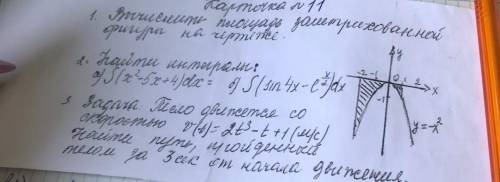 Карточка №11
1. Вычислить площадь заштрихованной
фигуры на чертеже.
2. Найти интеграл:
а) ∫(x²-5x+4)dx= б) ∫(sin4x-eˣ)dx
3 Задача Тело движется со
скоростью v(t)=2t³-t+1(м/с)
Найти путь, пройденный
телом за 3сек от начала движения.
y
-2 -1 0 1 2 x
-1
y=-x²